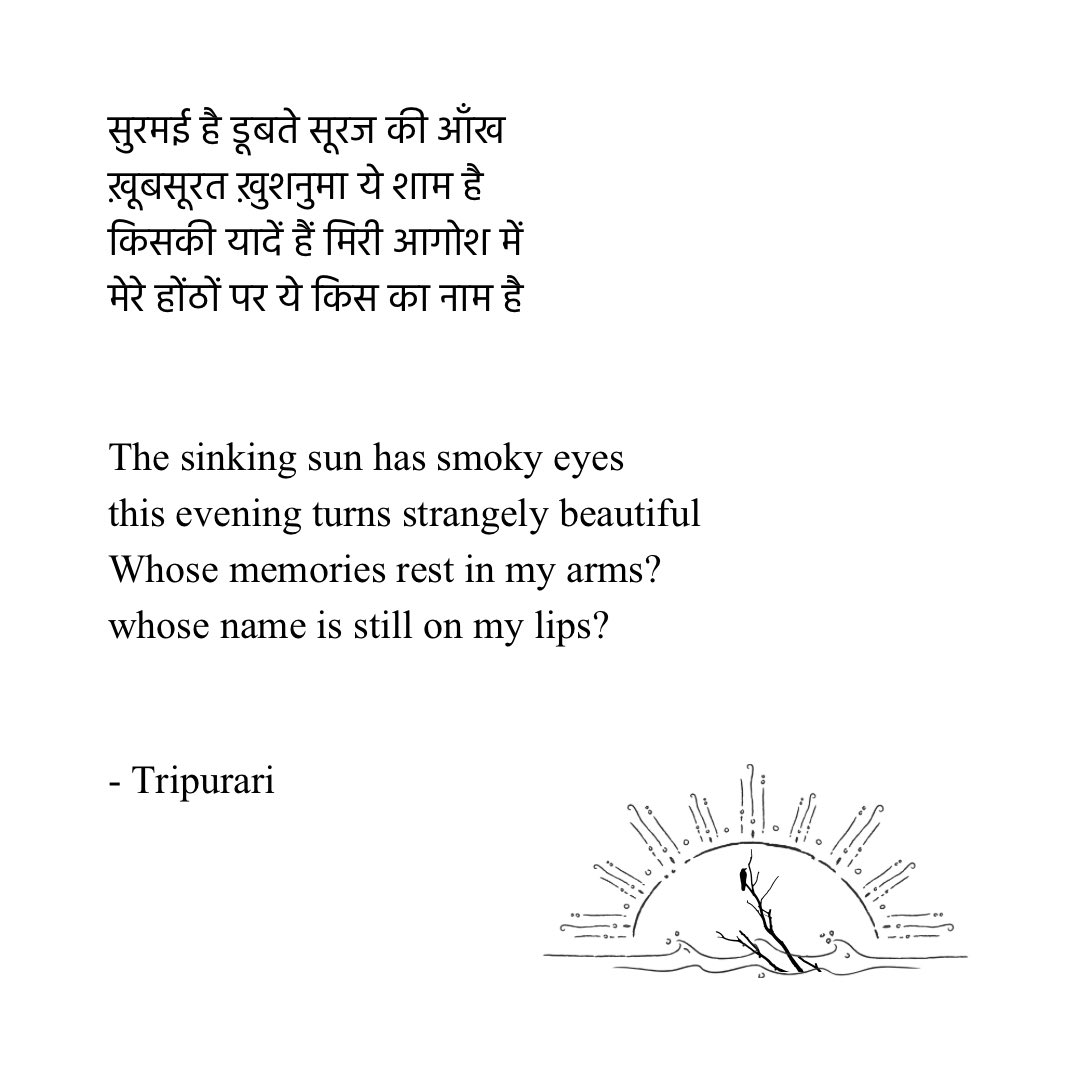 सुरमई है डूबते सूरज की आँख
ख़ूबसूरत ख़ुशनुमा ये शाम है
किसकी यादें हैं मिरी आगोश में
मेरे होंठों पर ये किस का नाम है
The sinking sun has smoky eyes
this evening turns strangely beautiful
Whose memories rest in my arms?
whose name is still on my lips?
- Tripurari